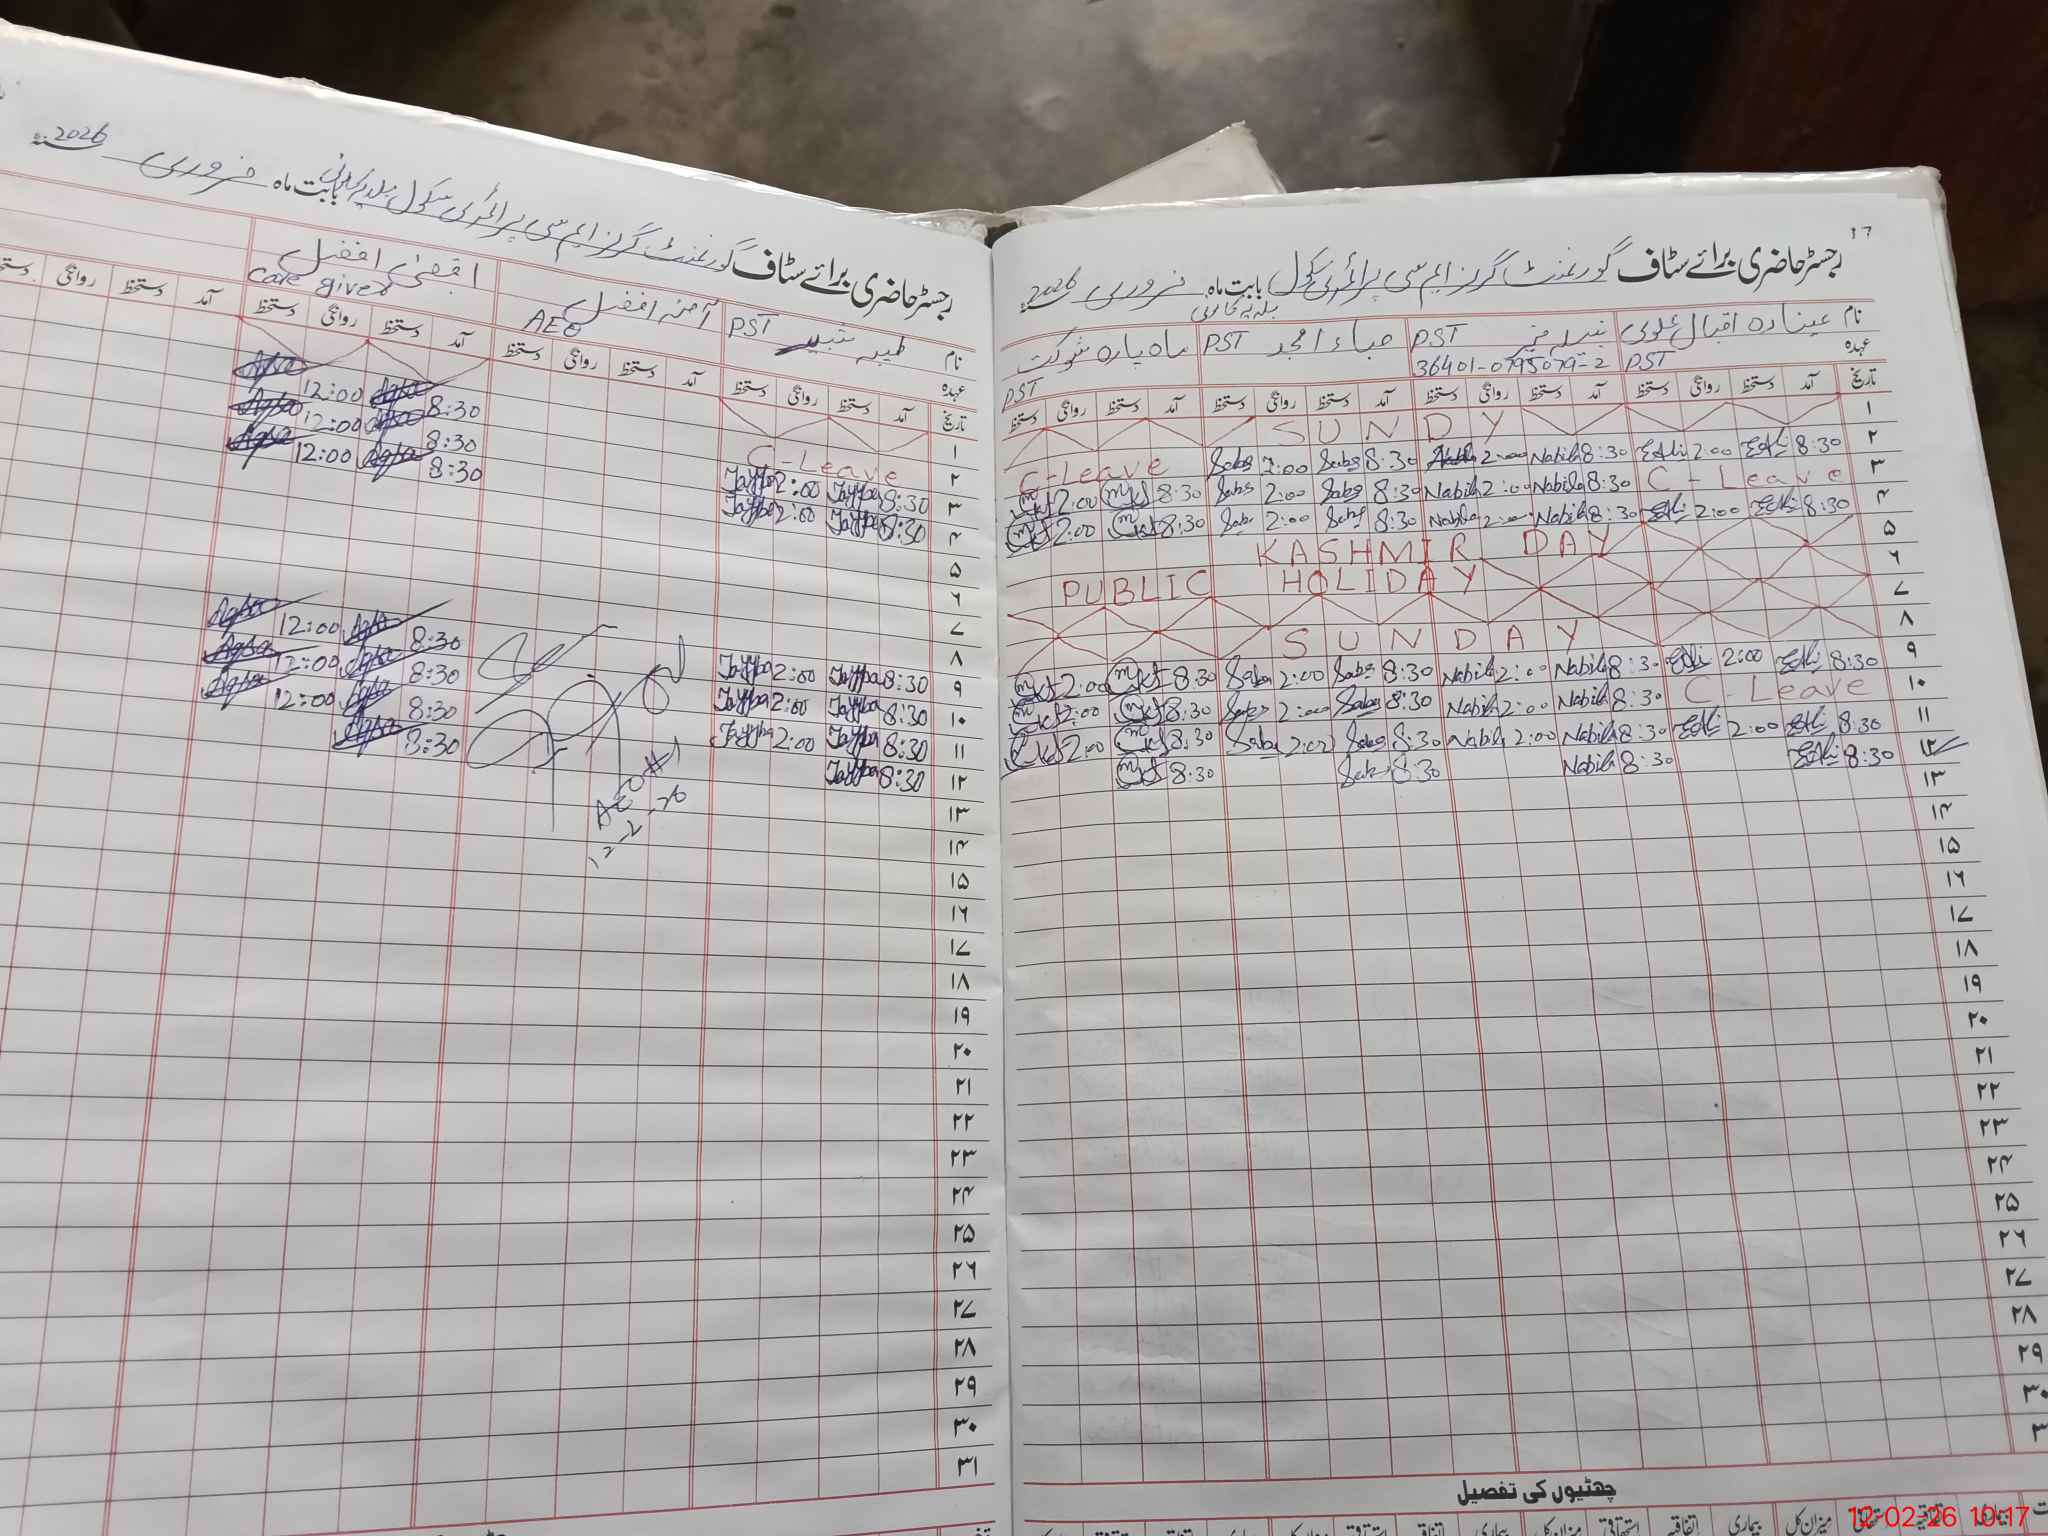 17
رجسٹر حاضری برائے سٹاف گورنمنٹ گرلز ایم سی پرائمری سکول بابت ماہ فروری 2026
بلدیہ کالونی
نام عینادہ اقبال علوی
PST صباء امجد PST ماہ پارہ شوکت
عہدہ PST 36401-0795079-2
PST
تاریخ آمد دستخط روانگی دستخط آمد دستخط روانگی دستخط آمد دستخط روانگی دستخط آمد دستخط روانگی دستخط
۱ SUNDY
۲ 8:30 Edli 2:00 Edli 8:30 Nabila 2:00 Nabila 8:30 Saba 2:00 Saba C-Leave
۳ C-Leave 8:30 Nabila 2:00 Nabila 8:30 Saba 2:00 Saba 8:30 2:00
۴ 8:30 Edli 2:00 Edli 8:30 Nabila 2:00 Nabila 8:30 Saba 2:00 Saba 8:30 2:00
۵ KASHMIR DAY
۶ PUBLIC HOLIDAY
۷
۸ SUNDAY
۹ 8:30 Edli 2:00 Edli 8:30 Nabila 2:00 Nabila 8:30 Saba 2:00 Saba 8:30 2:00
۱۰ C-Leave 8:30 Nabila 2:00 Nabila 8:30 Saba 2:00 Saba 8:30 2:00
۱۱ 8:30 Edli 2:00 Edli 8:30 Nabila 2:00 Nabila 8:30 Saba 2:00 Saba 8:30 2:00
۱۲ 8:30 Edli 8:30 Nabila 8:30 Saba 8:30
۱۳
۱۴
۱۵
۱۶
۱۷
۱۸
۱۹
۲۰
۲۱
۲۲
۲۳
۲۴
۲۵
۲۶
۲۷
۲۸
۲۹
۳۰
۳
چھٹیوں کی تفصیل
استحقاقی اتفاقیہ بیماری میزان کل استحقاقی اتفاقیہ بیماری میزان کل
رجسٹر حاضری برائے سٹاف گورنمنٹ گرلز ایم سی پرائمری سکول بابت ماہ فروری 2026
نام طیبہ شبیر PST آمنہ افضل اقصیٰ افضل
عہدہ AEO Care giver
تاریخ آمد دستخط روانگی دستخط آمد دستخط روانگی دستخط آمد دستخط روانگی دستخط آمد دستخط روانگی دستخط
۱
۲ C-Leave 8:30 Aqsa 12:00 Aqsa
۳ 8:30 Tayyba 2:00 Tayyba 8:30 Aqsa 12:00 Aqsa
۴ 8:30 Tayyba 2:00 Tayyba 8:30 Aqsa 12:00 Aqsa
۵
۶
۷
۸
۹ 8:30 Tayyba 2:00 Tayyba 8:30 Aqsa 12:00 Aqsa
۱۰ 8:30 Tayyba 2:00 Tayyba 8:30 Aqsa 12:00 Aqsa
۱۱ 8:30 Tayyba 2:00 Tayyba 8:30 Aqsa 12:00 Aqsa
۱۲ 8:30 Tayyba 8:30 Aqsa
AEO #1
12-2-26
۱۳
۱۴
۱۵
۱۶
۱۷
۱۸
۱۹
۲۰
۲۱
۲۲
۲۳
۲۴
۲۵
۲۶
۲۷
۲۸
۲۹
۳۰
۳۱
12-02-26 10:17